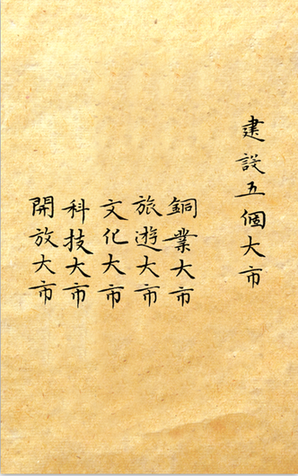 建設五個大市
銅業大市
旅遊大市
文化大市
科技大市
開放大市